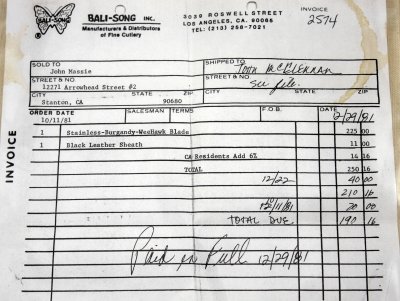 BALI-SONG INC.
Manufacturers & Distributors
of Fine Cutlery
3039 ROSWELL STREET
LOS ANGELES, CA. 90065
TEL: (213) 258-7021
INVOICE
2574
BALI-SONG
SOLD TO
John Massie
STREET & NO.
12271 Arrowhead Street #2
CITY STATE ZIP
Stanton, CA 90680
SHIPPED TO
John McClennan
STREET & NO.
See file.
CITY STATE ZIP
ORDER DATE SALESMAN TERMS F.O.B. DATE
10/11/81 12/29/81
1 Stainless-Burgandy-WeeHawk Blade 225 00
1 Black Leather Sheath 11 00
CA Residents Add 6% 14 16
TOTAL 250 16
12/22 40 00
210 16
12/11/81 20 00
TOTAL DUE 190 16
Paid in Full 12/29/81
INVOICE